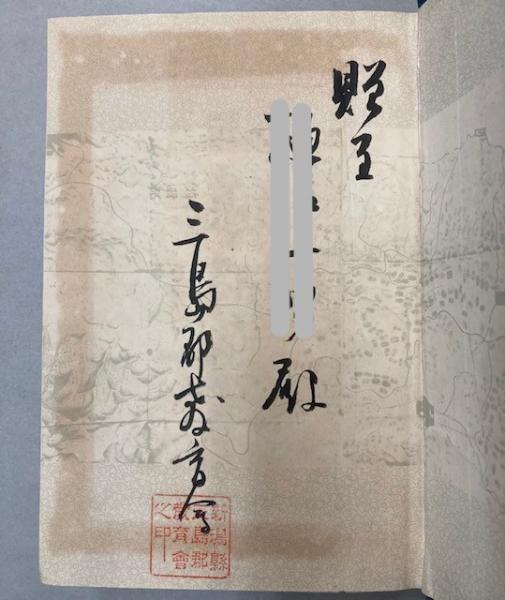 贈呈
殿
三島郡教育会
新潟縣
三島郡
教育會
之印